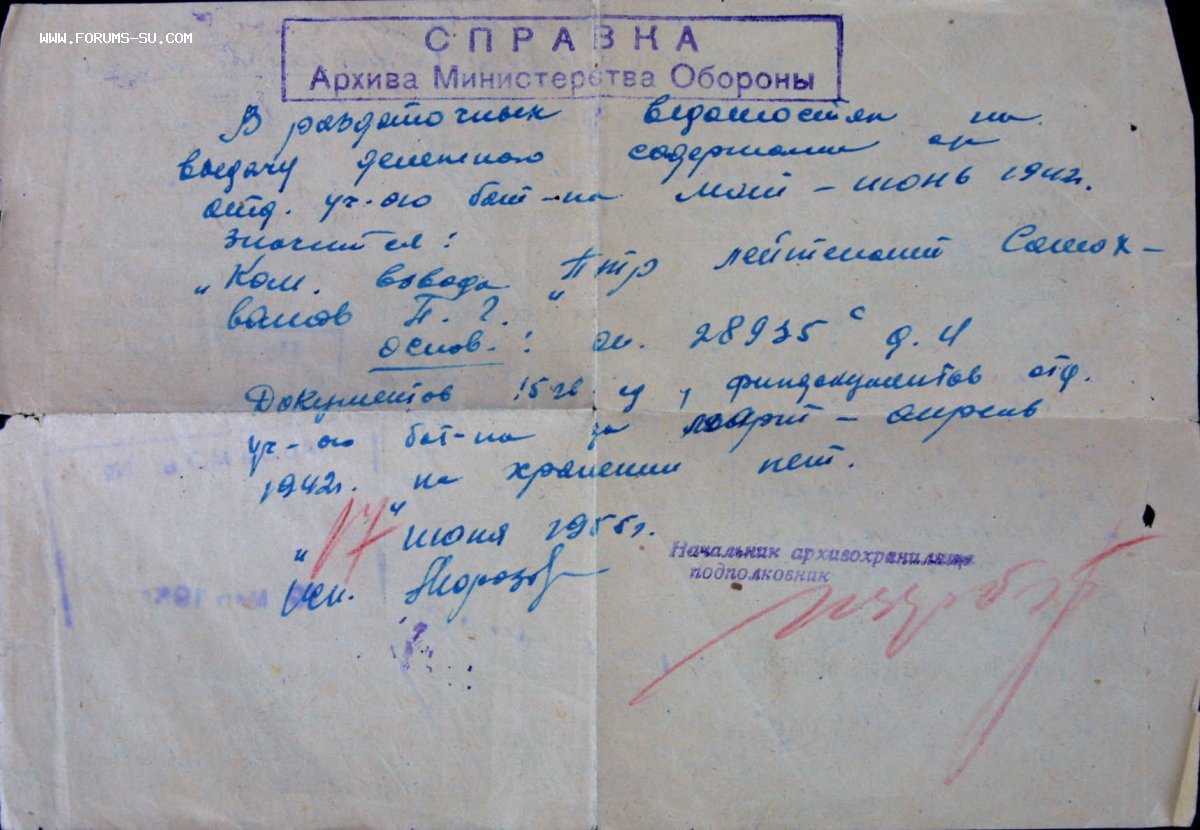 www.forums-su.com
СПРАВКА
Архива Министерства Обороны
В раздаточных ведомостях на
выдачу денежного содержания
отд. уч-ого бат-на май – июнь 1942г.
значится:
"Ком. взвода ПТР лейтенант Самох-
валов П. Г."
Основ.: оп. 28935с д. 4
Документов 15 гв. , финдокументов отд.
уч-ого бат-на за март – апрель
1942г. на хранении нет.
"17" июня 1955г.
Исп. Морозов
Начальник архивохранилища
подполковник